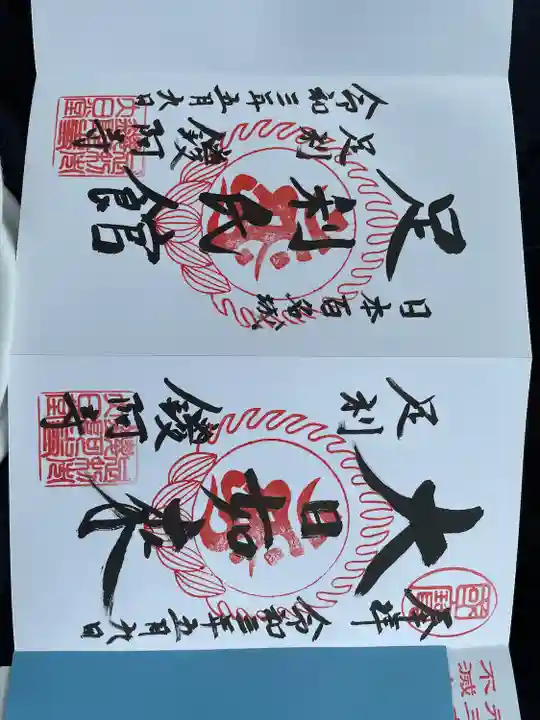 不滅
奉拝
令和三年五月六日
大日如来
足利
鑁阿寺
日本百名城
足利氏館
足利
鑁阿寺
令和三年五月六日